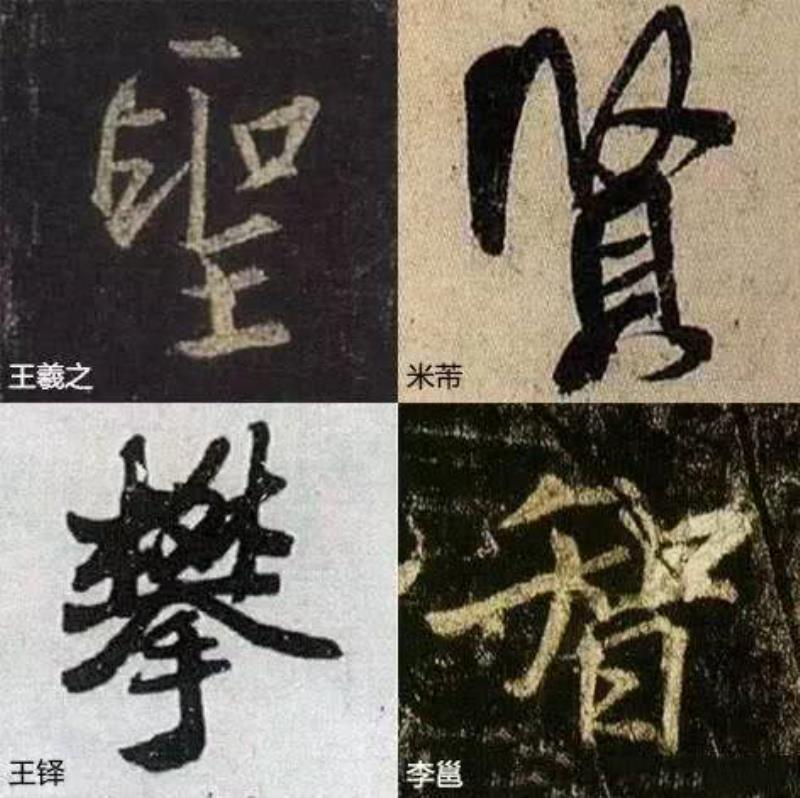 聖
王羲之
賢
米芾
攀
王铎
智
李邕